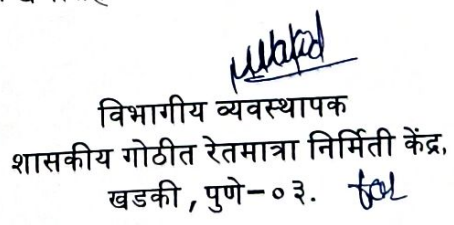 विभागीय व्यवस्थापक
शासकीय गोठीत रेतमात्रा निर्मिती केंद्र,
खडकी , पुणे-०३. for